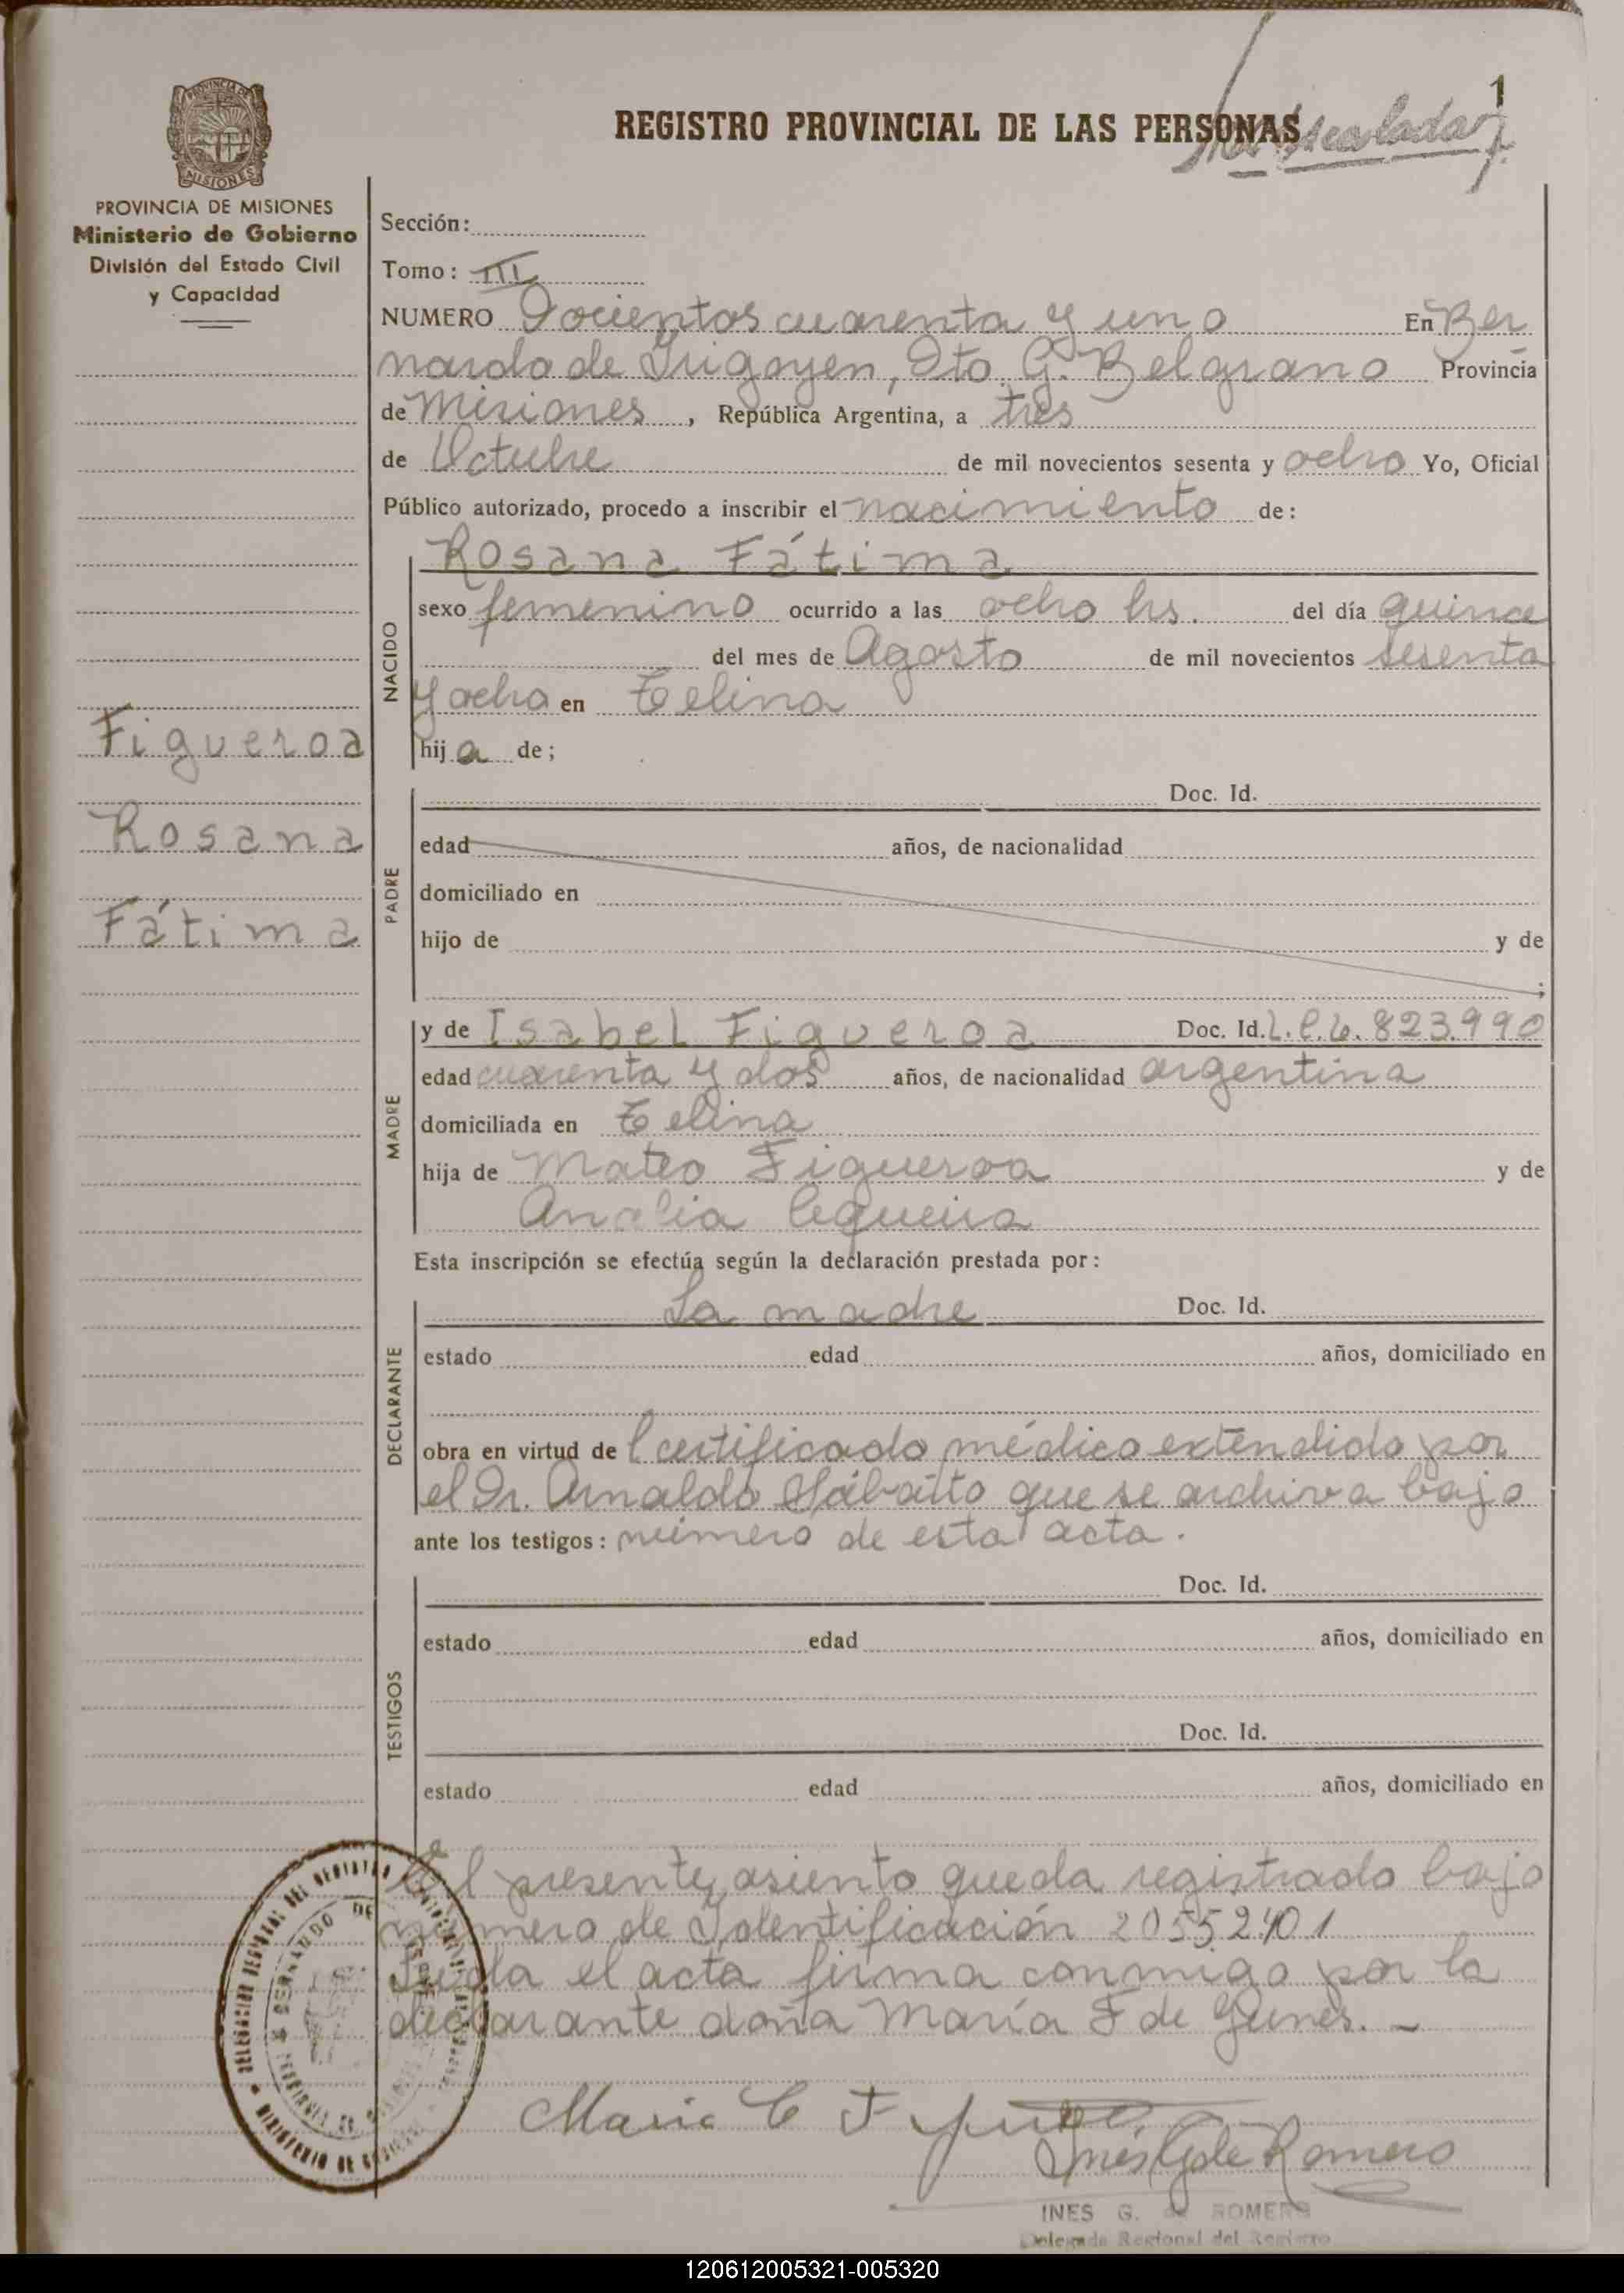 1
REGISTRO PROVINCIAL DE LAS PERSONAS
PROVINCIA DE
MISIONES
PROVINCIA DE MISIONES
Ministerio de Gobierno
División del Estado Civil
y Capacidad
Sección:
Tomo: III
NUMERO Docientos cuarenta y uno En Ber
nardo de Irigoyen, Dto. G. Belgrano Provincia
de Misiones, República Argentina, a tres
de Octubre de mil novecientos sesenta y ocho Yo, Oficial
Público autorizado, procedo a inscribir el nacimiento de:
Rosana Fátima
NACIDO
sexo femenino ocurrido a las ocho hs. del día quince
del mes de Agosto de mil novecientos sesenta
y ocho en Celina
hija de;
Figueroa
Rosana
Fátima
PADRE
Doc. Id.
edad años, de nacionalidad
domiciliado en
hijo de y de
;
MADRE
y de Isabel Figueroa Doc. Id. L.C. 6.823.990
edad cuarenta y dos años, de nacionalidad argentina
domiciliada en Celina
hija de Mateo Figueroa y de
Analia Cequeira
Esta inscripción se efectúa según la declaración prestada por:
DECLARANTE
La madre Doc. Id.
estado edad años, domiciliado en
obra en virtud del certificado médico extendido por
el Dr. Arnaldo Sábatto que se archiva bajo
ante los testigos: número de esta acta.
TESTIGOS
Doc. Id.
estado edad años, domiciliado en
Doc. Id.
estado edad años, domiciliado en
El presente asiento queda registrado bajo
número de Identificación 20552401
Leída el acta firma conmigo por la
declarante doña María F de Gunes.-
Maria C F
Inés G de Romero
INES G. de ROMERO
Delegada Regional del Registro
120612005321-005320